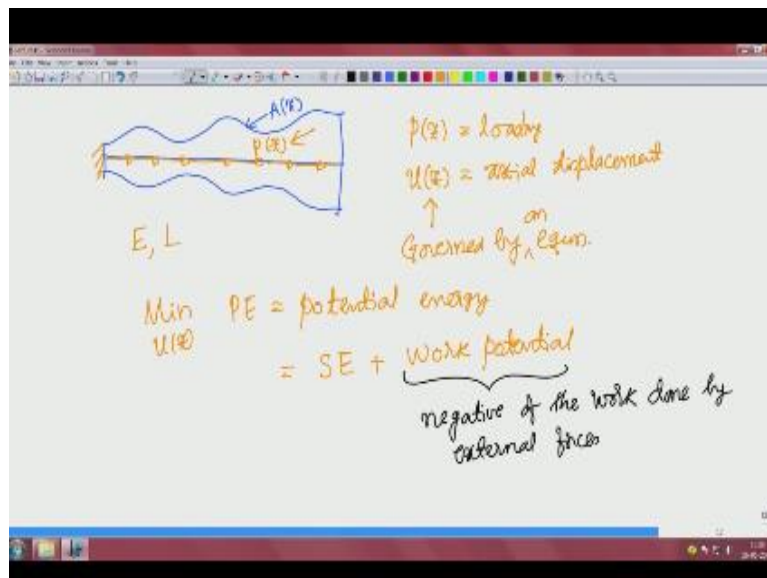 A(x)
p(x)
E, L
p(x) = loading
u(x) = axial displacement
↑
Governed by ^an eqn.
Min PE = potential energy
u(x)
= SE + Work potential
negative of the work done by
external forces